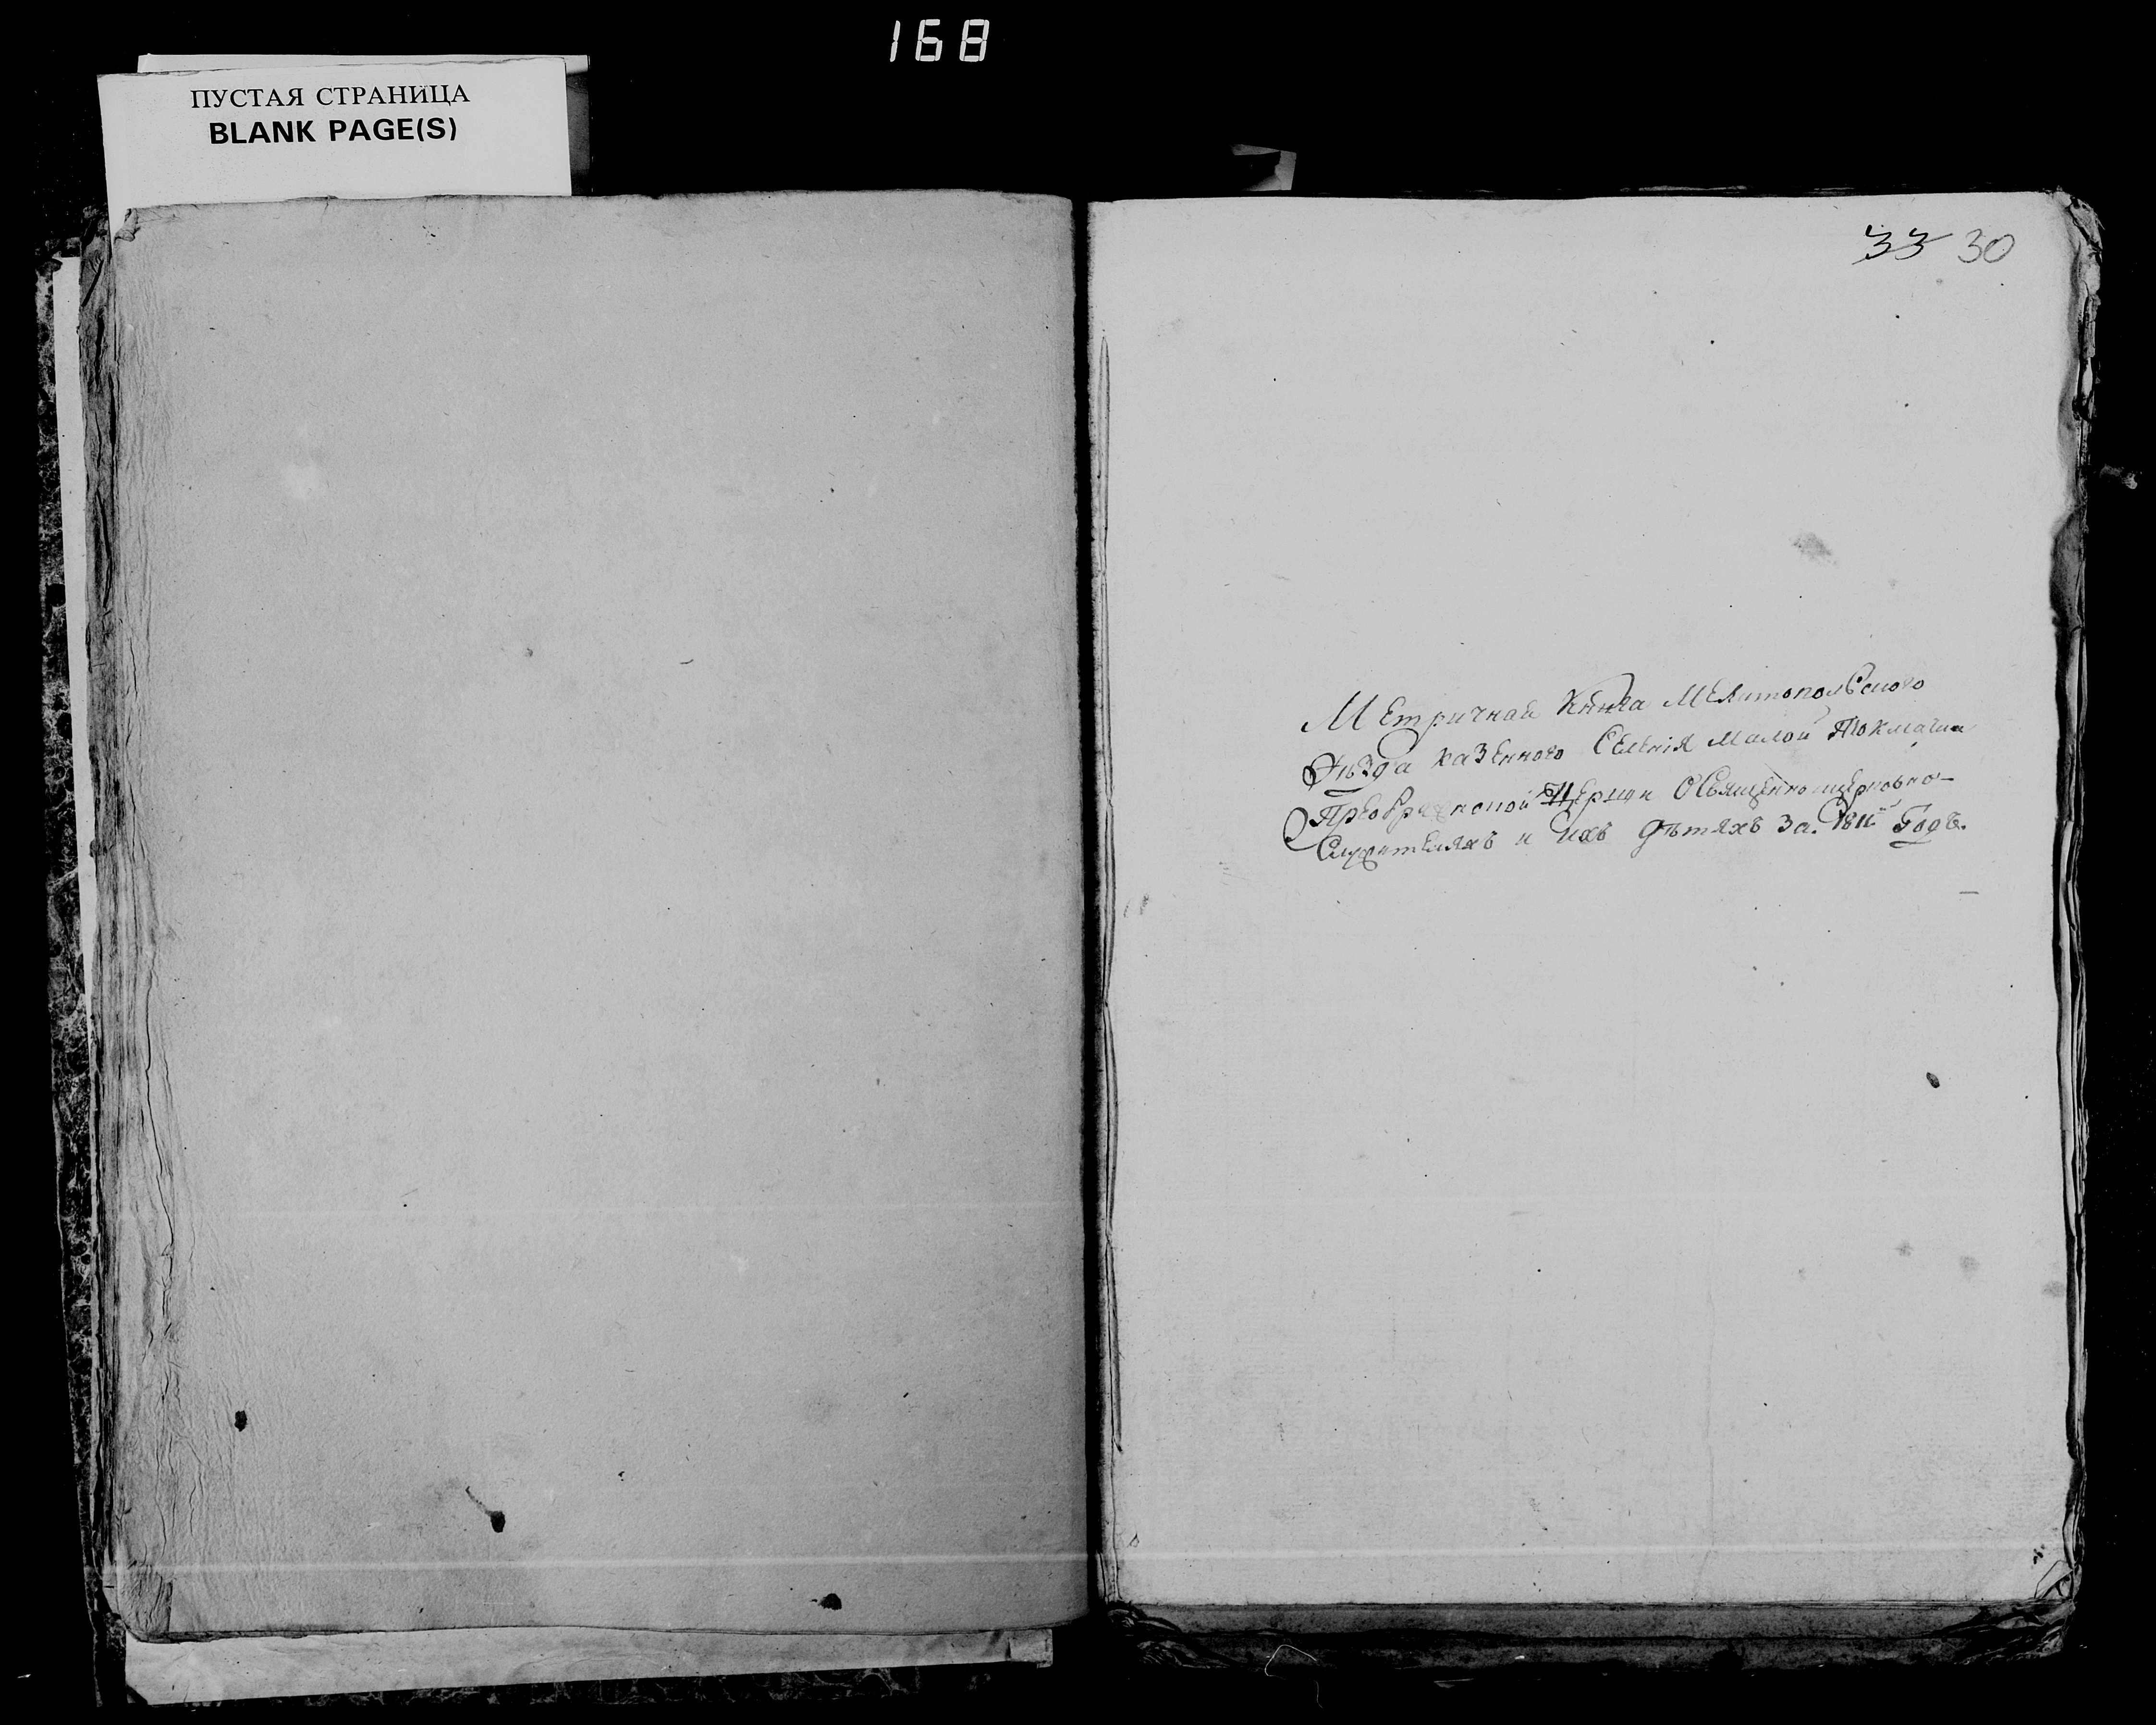 168
ПУСТАЯ СТРАНИЦА
BLANK PAGE(S)
33 30
Метричная Книга Мелитопольского
Уѣзда казенного Селенія малой Токмачки
Преображенской Церкви О Священноцерковно-
Служителяхъ и ихъ дѣтяхъ за 1811й Годъ.